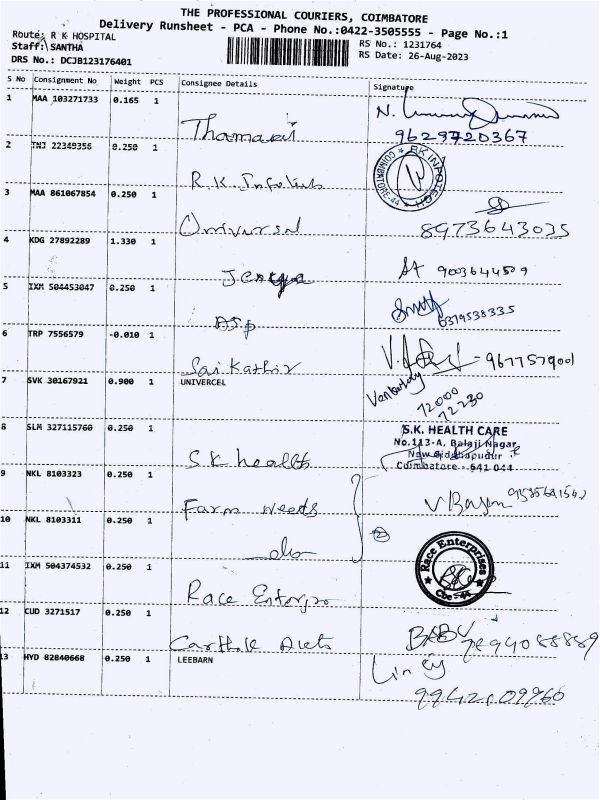 THE PROFESSIONAL COURIERS, COIMBATORE
Delivery Runsheet - PCA - Phone No.:0422-3505555 - Page No.:1
Route: R K HOSPITAL
Staff: SANTHA
DRS No.: DCJB123176401
RS No.: 1231764
RS Date: 26-Aug-2023
S No Consignment No Weight PCS Consignee Details Signature
1 MAA 103271733 0.165 1
9629720367
2 TNJ 22349356 0.250 1 R.K. Infotech
COIMBATORE-44 ★ RK INFOTECH
3 MAA 861067854 0.250 1 Universal
8973643035
4 KDG 27892289 1.330 1
9003644509
5 IXM 504453047 0.250 1 DSP
6379538335
6 TRP 7556579 -0.010 1 Sai Kathir
9677579001
7 SVK 30167921 0.900 1 UNIVERCEL
72000
72230
8 SLM 327115760 0.250 1 S.K health
S.K. HEALTH CARE
No.113-A, Balaji Nagar,
New Siddhapudur
Coimbatore - 641 044
9 NKL 8103323 0.250 1 Farm needs
10 NKL 8103311 0.250 1 do
2
11 IXM 504374532 0.250 1 Race Enterpr
★ Race Enterprises ★ Cbe-44
12 CUD 3271517 0.250 1
BABU
13 HYD 82840668 0.250 1 LEEBARN
9942109960